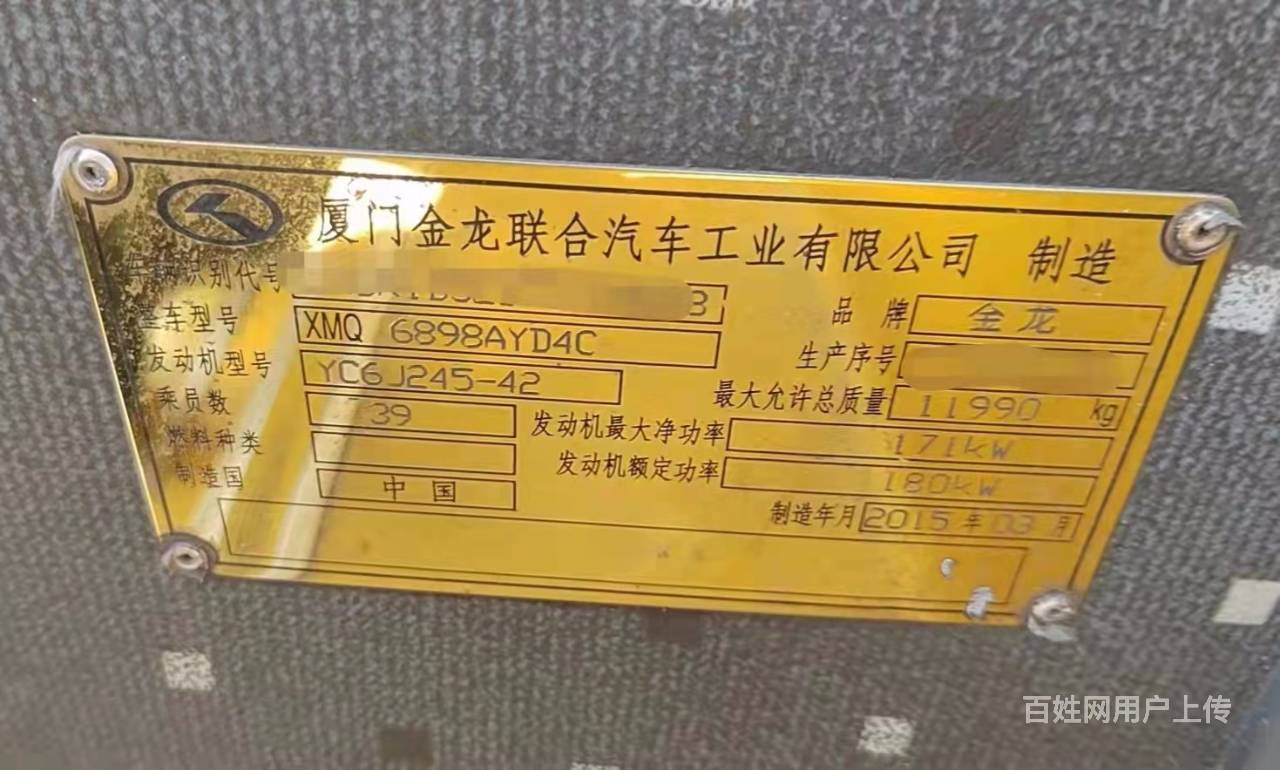 厦门金龙联合汽车工业有限公司 制造
车辆识别代号
品牌 金龙
整车型号 XMQ 6898AYD4C
生产序号
发动机型号 YC6J245-42
最大允许总质量 11990 kg
乘员数 39
发动机最大净功率 171kW
燃料种类
发动机额定功率 180kW
制造国 中国
制造年月 2015年03月
百姓网用户上传